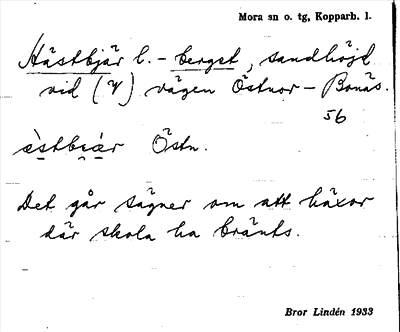 Mora sn o. tg, Kopparb. l.
Hästbjär l. - berget, sandhöjd
vid (V) vägen Östnor - Bonäs.
56
èstbiær Östn.
Det går sägner om att häxor
där skola ha bränts.
Bror Lindén 1933